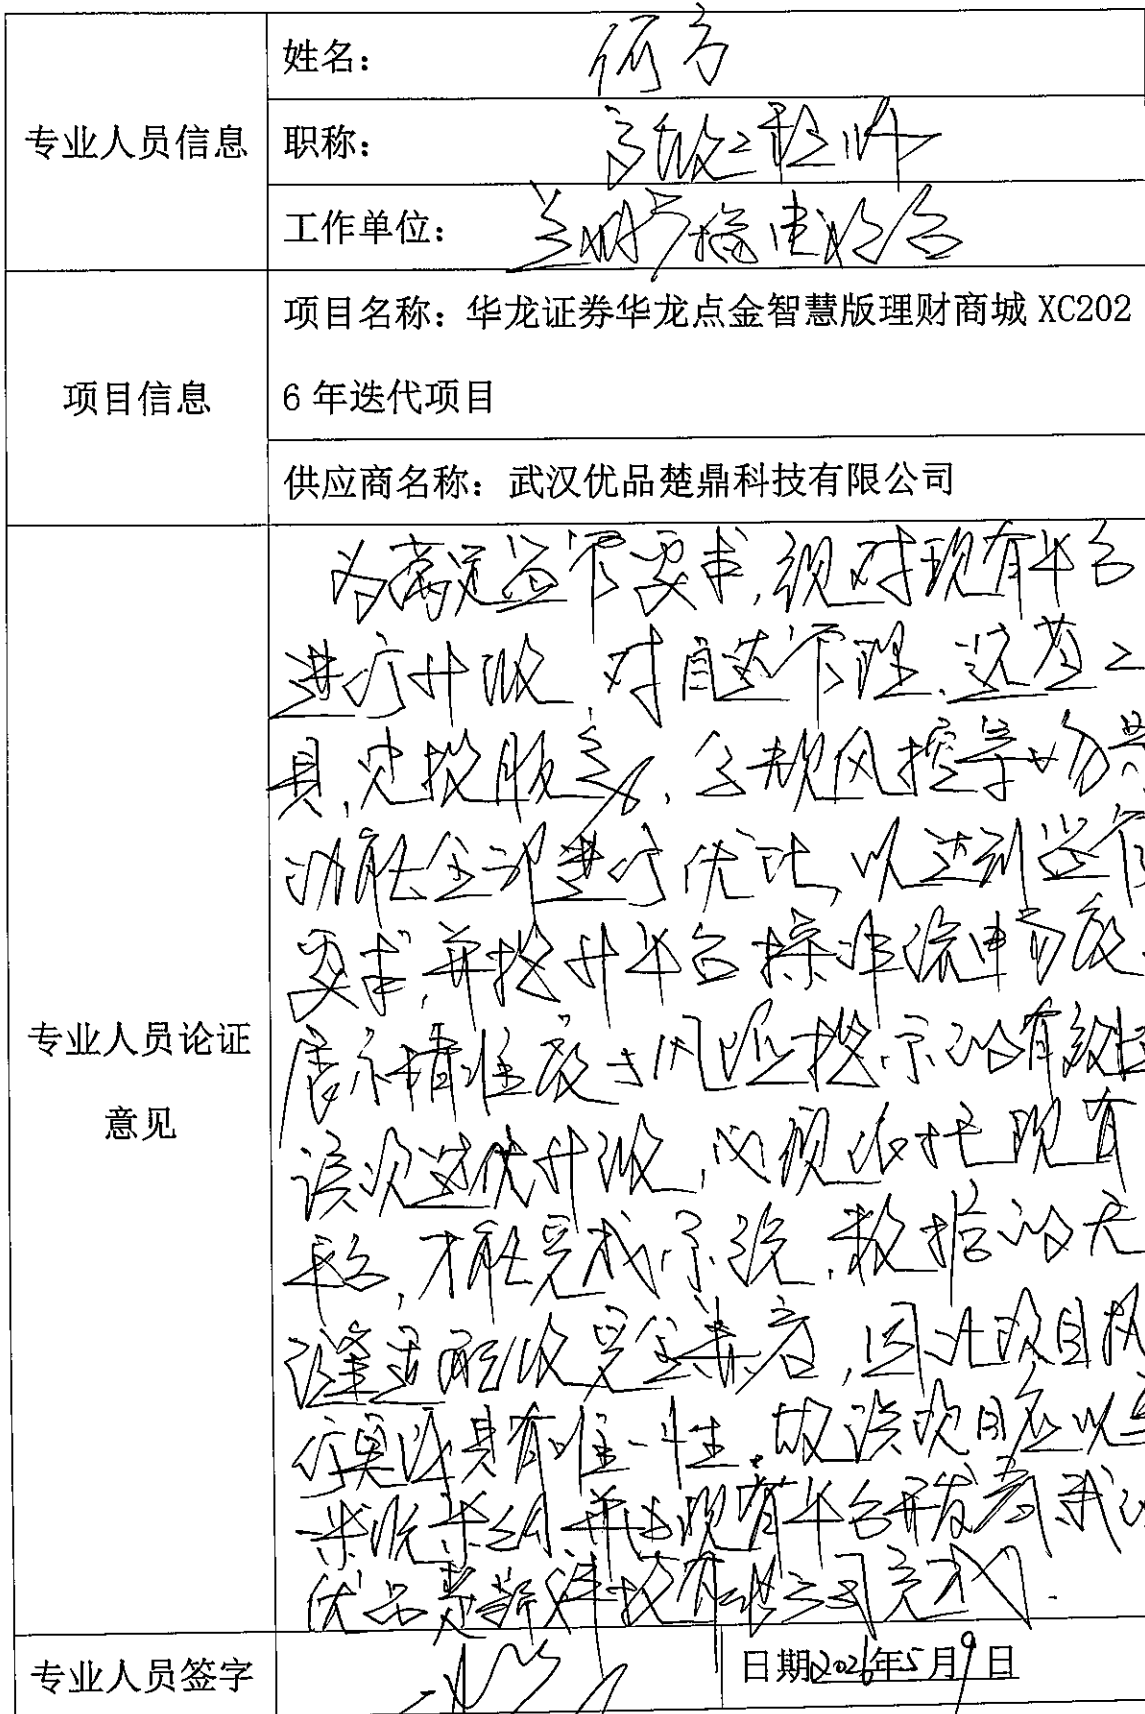 专业人员信息
姓名：何方
职称：高级工程师
工作单位：兰州广播电视台
项目信息
项目名称：华龙证券华龙点金智慧版理财商城 XC202
6 年迭代项目
供应商名称：武汉优品楚鼎科技有限公司
专业人员论证
意见
为满足监管要求,现对现有平台
进行升级,对自选管理、选基工
具,定投服务,合规风控等
功能全部进行优化,以达到监管
要求,并提升平台操作流申高效、
展示精准度与风险提示的有效性
该次迭代升级,必须依托现有
平台,才能完成系统,数据的无
缝适配级完全兼容,因此项目执
行渠道具有唯一性。故该项目应以单
一来源采购,并由现有平台开发者武汉
优品楚鼎科技有限公司完成.
专业人员签字
日期2026年5月9日